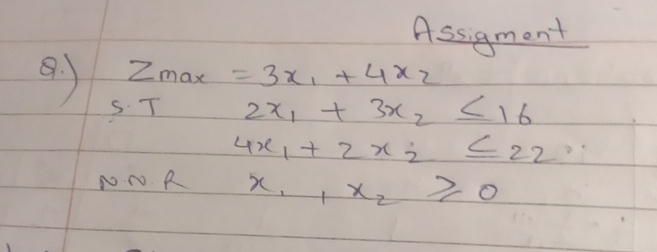 Assigment
Q.) Zmax = 3x₁ + 4x₂
S.T 2x₁ + 3x₂ ≤ 16
4x₁ + 2x₂ ≤ 22
N.N.R x₁, x₂ ≥ 0